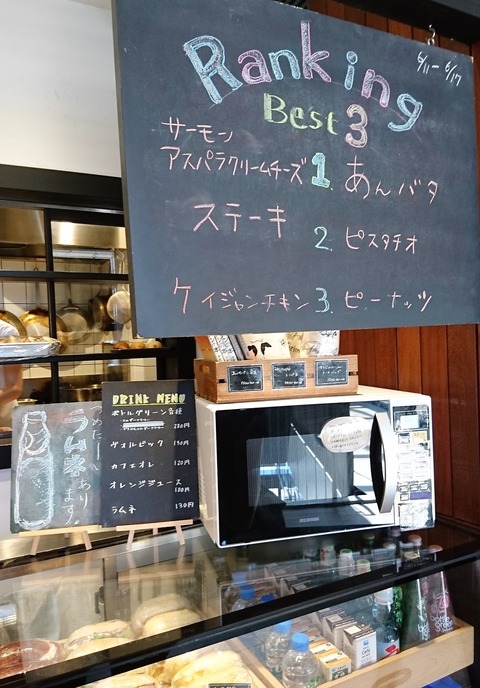 Ranking
6/11 - 6/17
Best 3
サーモン
アスパラクリームチーズ 1. あんバタ
ステーキ 2. ピスタチオ
ケイジャンチキン 3. ピーナッツ
つめた～い
ラムネあり
ます。
DRINK MENU
ボトルグリーン各種
280円
ヴォルビック 130円
カフェオレ 120円
オレンジジュース
100円
ラムネ 130円